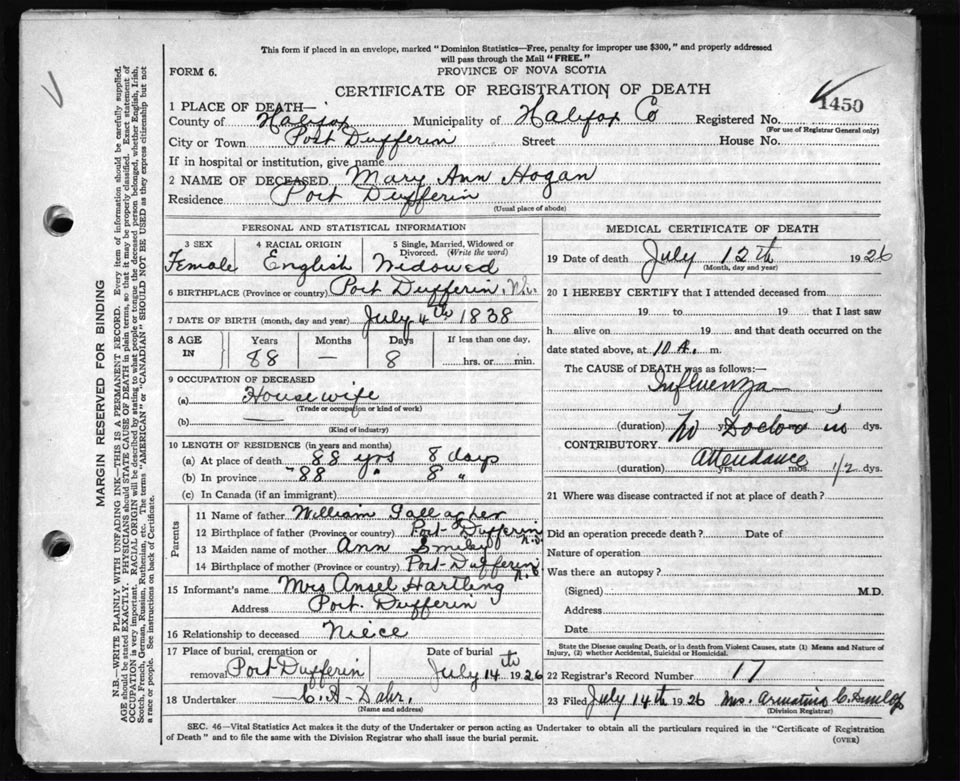 This form if placed in an envelope, marked "Dominion Statistics—Free, penalty for improper use $300," and properly addressed
will pass through the Mail "FREE."
FORM 6.
PROVINCE OF NOVA SCOTIA
CERTIFICATE OF REGISTRATION OF DEATH
1450
1 PLACE OF DEATH—
County of Halifax Municipality of Halifax Co Registered No.
(For use of Registrar General only)
City or Town Port Dufferin Street House No.
If in hospital or institution, give name
2 NAME OF DECEASED Mary Ann Hogan
Residence Port Dufferin
(Usual place of abode)
PERSONAL AND STATISTICAL INFORMATION
3 SEX 4 RACIAL ORIGIN 5 Single, Married, Widowed or
Divorced. (Write the word)
Female English Widowed
6 BIRTHPLACE (Province or country) Port Dufferin, N.S.
7 DATE OF BIRTH (month, day and year) July 4th 1838
8 AGE IN Years Months Days If less than one day,
88 — 8 hrs. or min.
9 OCCUPATION OF DECEASED
(a) House wife
(Trade or occupation or kind of work)
(b) —
(Kind of industry)
10 LENGTH OF RESIDENCE (in years and months)
(a) At place of death 88 yrs 8 days
(b) In province 88 " 8 "
(c) In Canada (if an immigrant)
Parents
11 Name of father William Gallagher
12 Birthplace of father (Province or country) Port Dufferin N.S
13 Maiden name of mother Ann Smiley
14 Birthplace of mother (Province or country) Port Dufferin N.S
15 Informant's name Mrs Ansel Hartling
Address Port Dufferin
16 Relationship to deceased Niece
17 Place of burial, cremation or Date of burial
removal Port Dufferin July 14th 1926
18 Undertaker
(Name and address)
MEDICAL CERTIFICATE OF DEATH
19 Date of death July 12th 1926
(Month, day and year)
20 I HEREBY CERTIFY that I attended deceased from
19 to 19 that I last saw
h alive on 19 and that death occurred on
date stated above, at 10 A. m.
The CAUSE of DEATH was as follows:—
Influenza
(duration) No yrs Doctor in dys.
CONTRIBUTORY Attendance
(duration) yrs mos. 1/2 dys.
21 Where was disease contracted if not at place of death?
Did an operation precede death? Date of
Nature of operation
Was there an autopsy?
(Signed) M.D.
Address
Date
State the Disease causing Death, or in death from Violent Causes, state (1) Means and Nature of
Injury, (2) whether Accidental, Suicidal or Homicidal.
22 Registrar's Record Number 17
23 Filed July 14th 1926 Mrs. C. Dunlop
(Division Registrar)
SEC. 46—Vital Statistics Act makes it the duty of the Undertaker or person acting as Undertaker to obtain all the particulars required in the "Certificate of Registration
of Death" and to file the same with the Division Registrar who shall issue the burial permit.
(OVER)
MARGIN RESERVED FOR BINDING
N.B.—WRITE PLAINLY WITH UNFADING INK—THIS IS A PERMANENT RECORD. Every item of information should be carefully supplied.
AGE should be stated EXACTLY. PHYSICIANS should STATE CAUSE OF DEATH in plain terms, so that it may be properly classified. Exact statement of
OCCUPATION is very important. RACIAL ORIGIN will be described by stating to what people or tongue the deceased person belonged, whether English, Irish,
Scotch, French, German, Russian, Ruthenian, etc. The terms "AMERICAN" or "CANADIAN" SHOULD NOT BE USED as they express citizenship but not
a race or people. See instructions on back of Certificate.